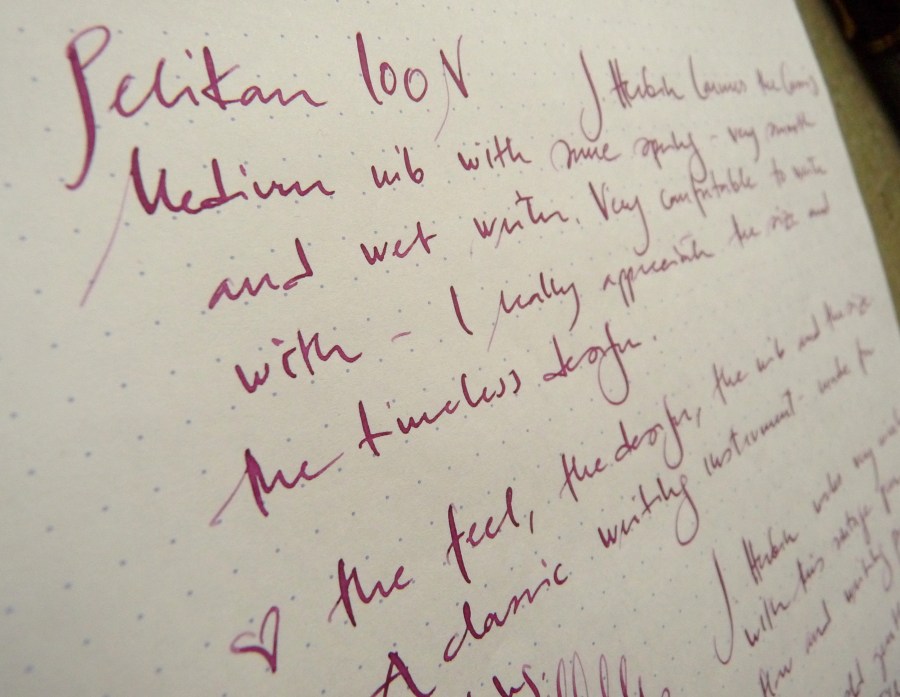 Pelikan 100N
J. Herbin Larmes de Cassis
Medium nib with some spring - very smooth
and wet writer. Very comfortable to write
with - I really appreciate the size and
the timeless design.
♡ the feel, the design, the nib and the size
A classic writing instrument - made for
J. Herbin inks my
with this vintage
flow and writing